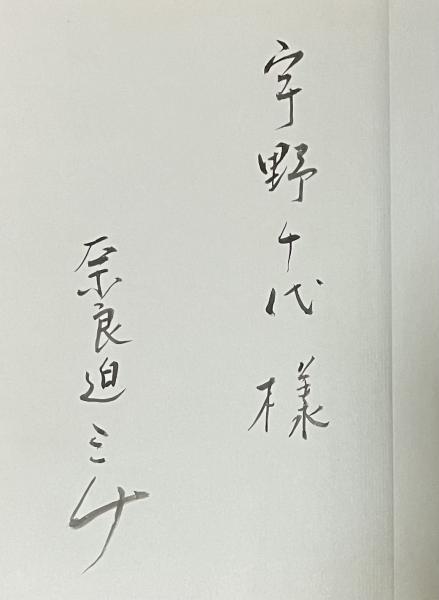 宇野千代 様
奈良迫ミチ